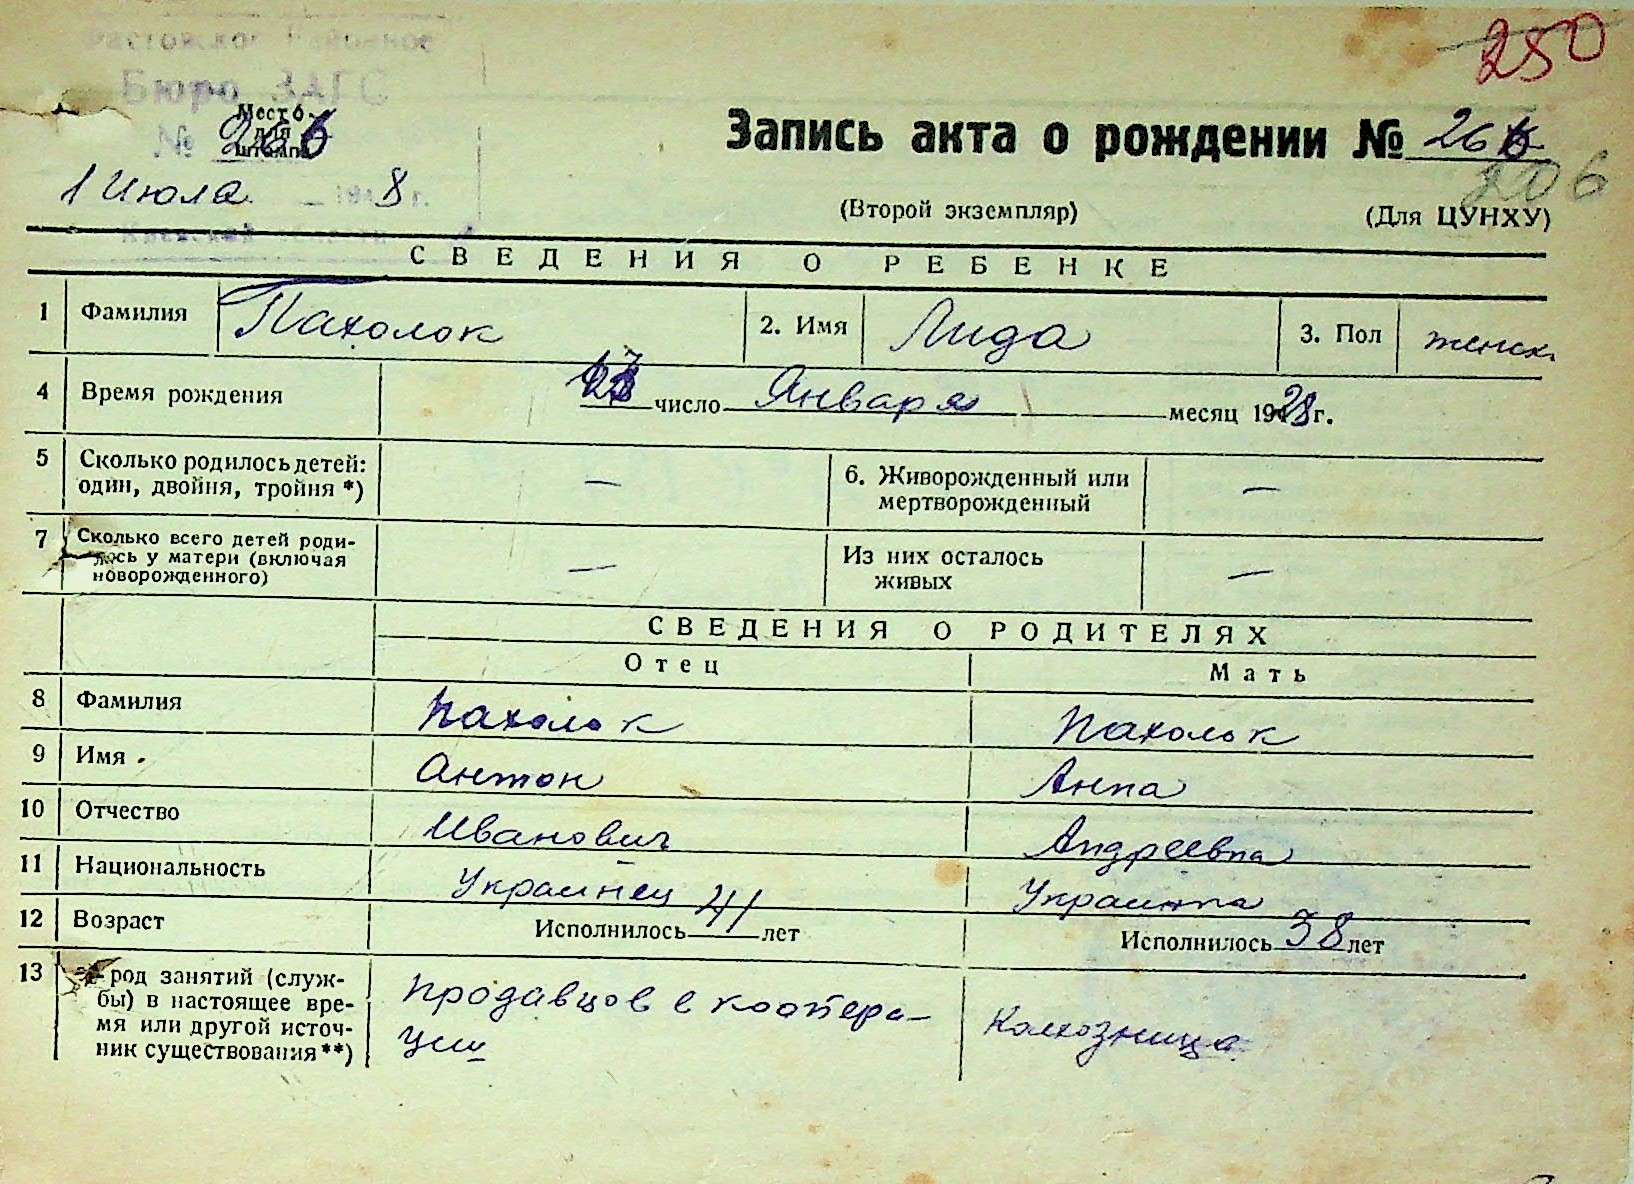 250
Бюро ЗАГС
Место
для
штампа
№ 266
1 Июля 1948 г.
Запись акта о рождении № 266
206
(Второй экземпляр) (Для ЦУНХУ)
СВЕДЕНИЯ О РЕБЕНКЕ
1 Фамилия Пахолок 2. Имя Лида 3. Пол женск.
4 Время рождения число Января месяц 1928 г.
5 Сколько родилось детей: один, двойня, тройня *) — 6. Живорожденный или мертворожденный —
7 Сколько всего детей родилось у матери (включая новорожденного) — Из них осталось живых —
СВЕДЕНИЯ О РОДИТЕЛЯХ
Отец Мать
8 Фамилия Пахолок Пахолок
9 Имя Антон Анна
10 Отчество Иванович Андреевна
11 Национальность Украинец Украинка
12 Возраст Исполнилось 41 лет Исполнилось 38 лет
13 род занятий (службы) в настоящее время или другой источник существования **) продавцов в коопера-
ции Колхозница